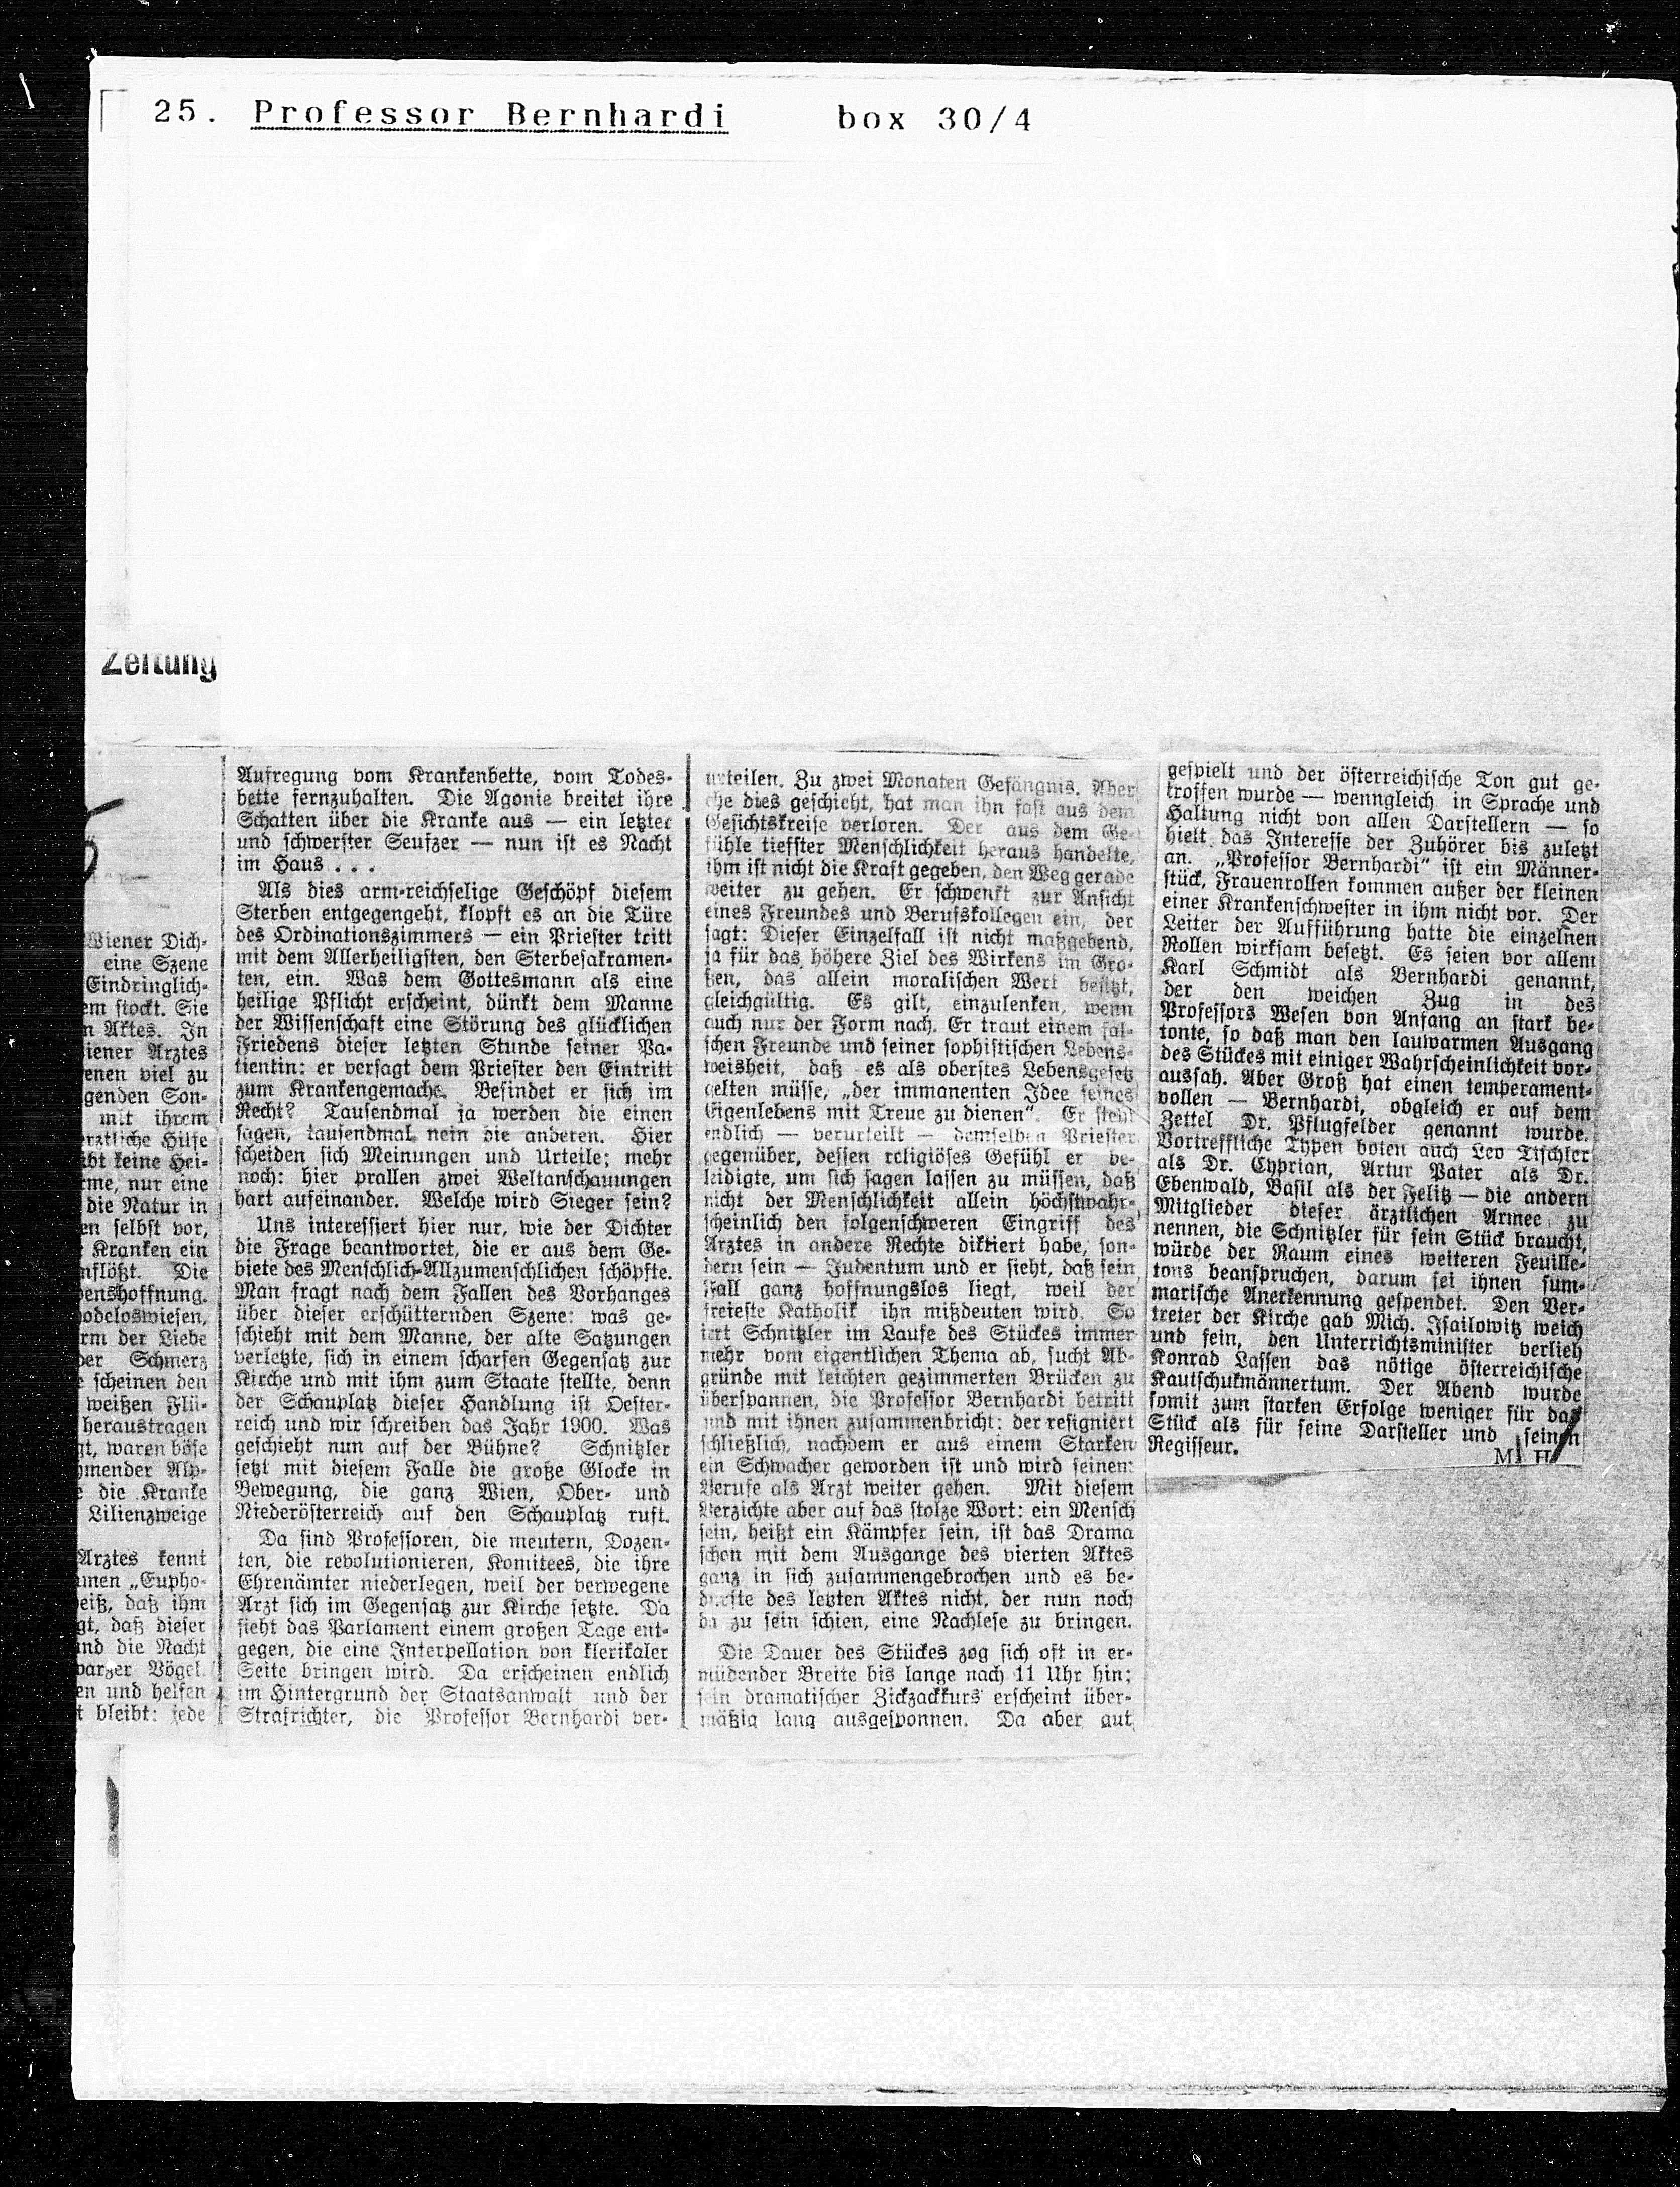 25. Professor Bernhardi box 30/4
Zeitung
Wiener Dich-
eine Szene
Eindringlich-
em stockt. Sie
n Aktes. In
iener Arztes
enen viel zu
genden Son-
mit ihrem
erztliche Hilfe
ibt keine Hei-
rme, nur eine
die Natur in
en selbst vor,
r Kranken ein
nflößt. Die
enshoffnung.
odeloswiesen,
rm der Liebe
der Schmerz
e scheinen den
weißen Flü-
heraustragen
gt, waren böse
hmender Alp-
e die Kranke
Lilienzweige
Arztes kennt
men „Eupho-
eiß, daß ihm
gt, daß dieser
und die Nacht
warzer Vögel.
en und helfen
t bleibt: jede
Aufregung vom Krankenbette, vom Todes-
bette fernzuhalten. Die Agonie breitet ihre
Schatten über die Kranke aus — ein letzter
und schwerster Seufzer — nun ist es Nacht
im Haus . . .
Als dies arm-reichselige Geschöpf diesem
Sterben entgegengeht, klopft es an die Türe
des Ordinationszimmers — ein Priester tritt
mit dem Allerheiligsten, den Sterbesakramen-
ten, ein. Was dem Gottesmann als eine
heilige Pflicht erscheint, dünkt dem Manne
der Wissenschaft eine Störung des glücklichen
Friedens dieser letzten Stunde seiner Pa-
tientin: er versagt dem Priester den Eintritt
zum Krankengemache. Befindet er sich im
Recht? Tausendmal ja werden die einen
sagen, tausendmal nein die anderen. Hier
scheiden sich Meinungen und Urteile; mehr
noch: hier prallen zwei Weltanschauungen
hart aufeinander. Welche wird Sieger sein?
Uns interessiert hier nur, wie der Dichter
die Frage beantwortet, die er aus dem Ge-
biete des Menschlich-Allzumenschlichen schöpfte.
Man fragt nach dem Fallen des Vorhanges
über dieser erschütternden Szene: was ge-
schieht mit dem Manne, der alte Satzungen
verletzte, sich in einem scharfen Gegensatz zur
Kirche und mit ihm zum Staate stellte, denn
der Schauplatz dieser Handlung ist Oester-
reich und wir schreiben das Jahr 1900. Was
geschieht nun auf der Bühne? Schnitzler
setzt mit diesem Falle die große Glocke in
Bewegung, die ganz Wien, Ober- und
Niederösterreich auf den Schauplatz ruft.
Da sind Professoren, die meutern, Dozen-
ten, die revolutionieren, Komitees, die ihre
Ehrenämter niederlegen, weil der verwegene
Arzt sich im Gegensatz zur Kirche setzte. Da
sieht das Parlament einem großen Tage ent-
gegen, die eine Interpellation von klerikaler
Seite bringen wird. Da erscheinen endlich
im Hintergrund der Staatsanwalt und der
Strafrichter, die Professor Bernhardi ver-
urteilen. Zu zwei Monaten Gefängnis. Aber
ehe dies geschieht, hat man ihn fast aus dem
Gesichtskreise verloren. Der aus dem Ge-
fühle tiefster Menschlichkeit heraus handelte,
ihm ist nicht die Kraft gegeben, den Weg gerade
weiter zu gehen. Er schwenkt zur Ansicht
eines Freundes und Berufskollegen ein, der
sagt: Dieser Einzelfall ist nicht maßgebend,
ja für das höhere Ziel des Wirkens im Gro-
ßen, das allein moralischen Wert besitzt,
gleichgültig. Es gilt, einzulenken, wenn
auch nur der Form nach. Er traut einem fal-
schen Freunde und seiner sophistischen Lebens-
weisheit, daß es als oberstes Lebensgesetz
gelten müsse, „der immanenten Idee seines
Eigenlebens mit Treue zu dienen“. Er steht
endlich — verurteilt — demselben Priester
gegenüber, dessen religiöses Gefühl er be-
leidigte, um sich sagen lassen zu müssen, daß
nicht der Menschlichkeit allein höchstwahr-
scheinlich den folgenschweren Eingriff des
Arztes in andere Rechte diktiert habe, son-
dern sein — Judentum und er sieht, daß sein
Fall ganz hoffnungslos liegt, weil der
freieste Katholik ihn mißdeuten wird. So
irrt Schnitzler im Laufe des Stückes immer
mehr vom eigentlichen Thema ab, sucht Ab-
gründe mit leichten gezimmerten Brücken zu
überspannen, die Professor Bernhardi betritt
und mit ihnen zusammenbricht: der resigniert
schließlich, nachdem er aus einem Starken
ein Schwacher geworden ist und wird seinem
Berufe als Arzt weiter gehen. Mit diesem
Verzichte aber auf das stolze Wort: ein Mensch
sein, heißt ein Kämpfer sein, ist das Drama
schon mit dem Ausgange des vierten Aktes
ganz in sich zusammengebrochen und es be-
durfte des letzten Aktes nicht, der nun noch
da zu sein schien, eine Nachlese zu bringen.
Die Dauer des Stückes zog sich oft in er-
müdender Breite bis lange nach 11 Uhr hin;
sein dramatischer Zickzackkurs erscheint über-
mäßig lang ausgesponnen. Da aber gut
gespielt und der österreichische Ton gut ge-
troffen wurde — wenngleich in Sprache und
Haltung nicht von allen Darstellern — so
hielt das Interesse der Zuhörer bis zuletzt
an. „Professor Bernhardi“ ist ein Männer-
stück, Frauenrollen kommen außer der kleinen
einer Krankenschwester in ihm nicht vor. Der
Leiter der Aufführung hatte die einzelnen
Rollen wirksam besetzt. Es seien vor allem
Karl Schmidt als Bernhardi genannt,
der den weichen Zug in des
Professors Wesen von Anfang an stark be-
tonte, so daß man den lauwarmen Ausgang
des Stückes mit einiger Wahrscheinlichkeit vor-
aussah. Aber Groß hat einen temperament-
vollen — Bernhardi, obgleich er auf dem
Zettel Dr. Pflugfelder genannt wurde.
Vortreffliche Typen boten auch Leo Tischler
als Dr. Cyprian, Artur Pater als Dr.
Ebenwald, Basil als der Felitz — die andern
Mitglieder dieser ärztlichen Armee zu
nennen, die Schnitzler für sein Stück braucht,
würde der Raum eines weiteren Feuille-
tons beanspruchen, darum sei ihnen sum-
marische Anerkennung gespendet. Den Ver-
treter der Kirche gab Mich. Isailowitz weich
und fein, den Unterrichtsminister verlieh
Konrad Lassen das nötige österreichische
Kautschukmännertum. Der Abend wurde
somit zum starken Erfolge weniger für das
Stück als für seine Darsteller und seinen
Regisseur.
M. H.